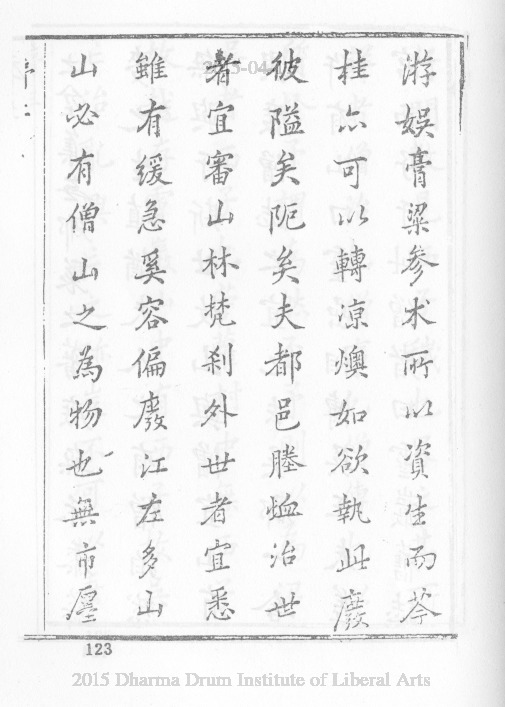 游娛膏粱參术所以資生而芩
桂亦可以轉凉燠如欲執此廢
彼隘矣阨矣夫都邑塍洫治世
者宜審山林梵刹外世者宜悉
雖有緩急奚容偏廢江左多山
山必有僧山之為物也無市廛
123
2015 Dharma Drum Institute of Liberal Arts